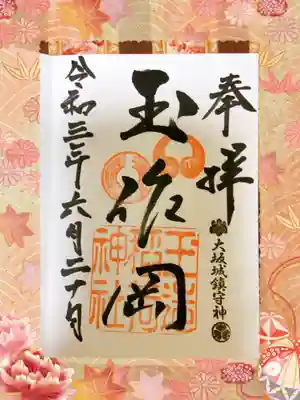 奉拝
大坂城鎮守神
玉作岡
玉造
稲荷
神社
令和三年六月二十日